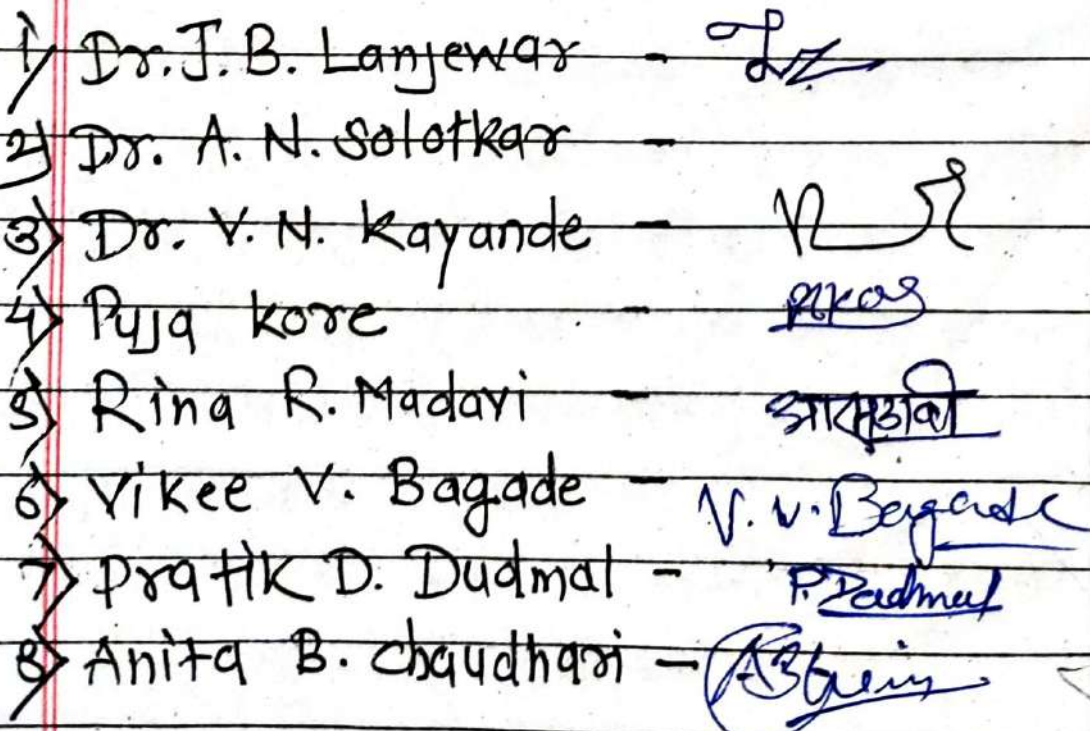 1) Dr. J. B. Lanjewar -
2) Dr. A. N. Solotkar -
3) Dr. V. N. Kayande -
4) Puja kore -
5) Rina R. Madavi -
6) Vikee V. Bagade - V. V. Bagade
7) Pratik D. Dudmal - P. Dudmal
8) Anita B. chaudhari -